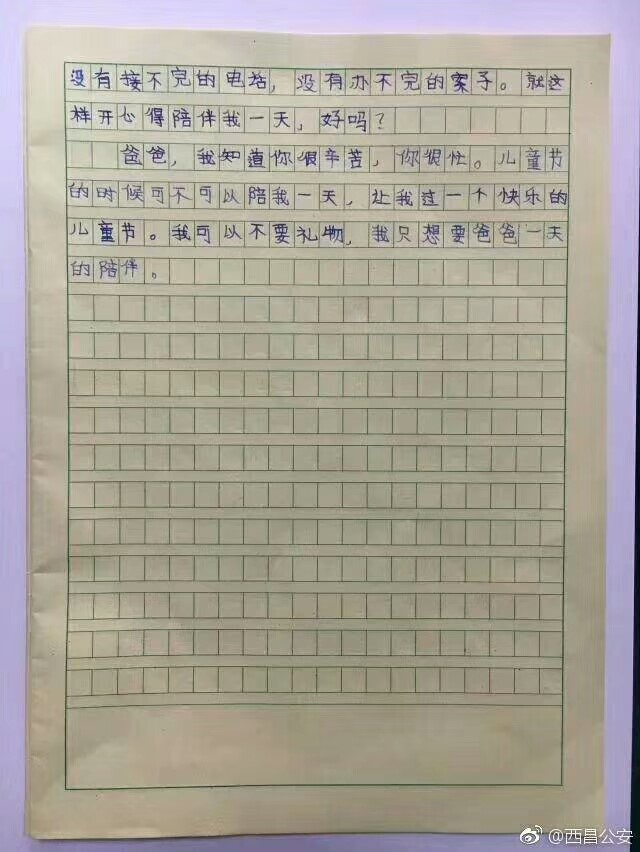 没有接不完的电话，没有办不完的案子。就这
样开心得陪伴我一天，好吗？
爸爸，我知道你很辛苦，你很忙。儿童节
的时候可不可以陪我一天，让我过一个快乐的
儿童节。我可以不要礼物，我只想要爸爸一天
的陪伴。
@西昌公安